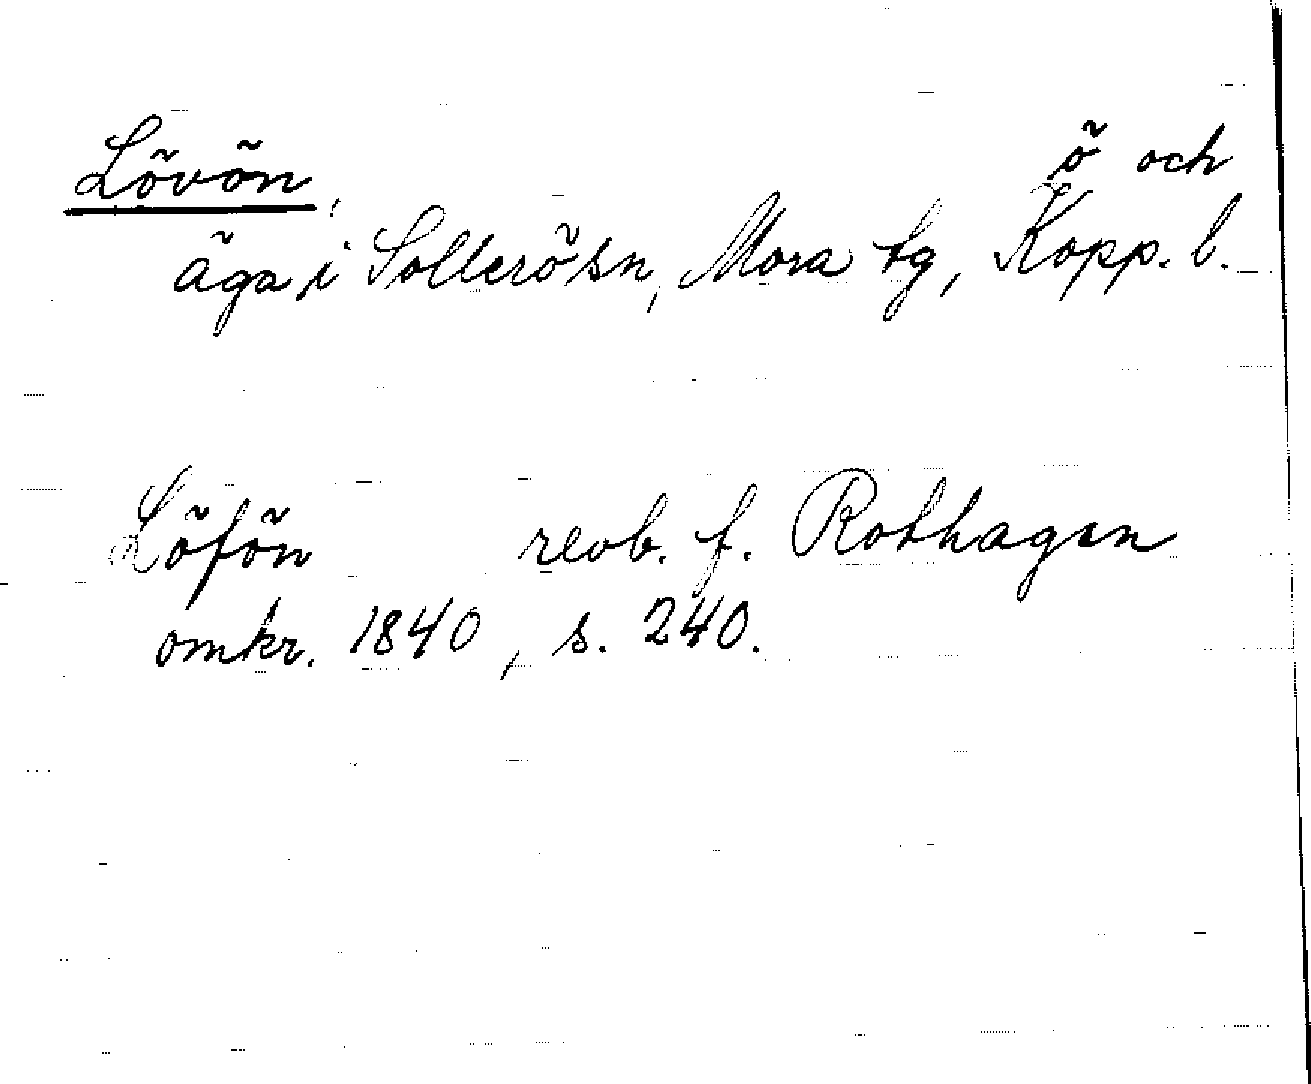 Lövön, ö och
äga i Sollerö sn, Mora tg, Kopp. l.
Löfön reob. f. Rothagen
omkr. 1840, s. 240.